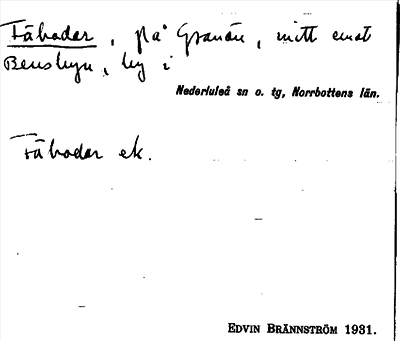 Fäbodar, på Granön, mitt emot
Bensbyn, by i
Nederluleå sn o. tg, Norrbottens län.
Fäbodar ek.
EDVIN BRÄNNSTRÖM 1931.